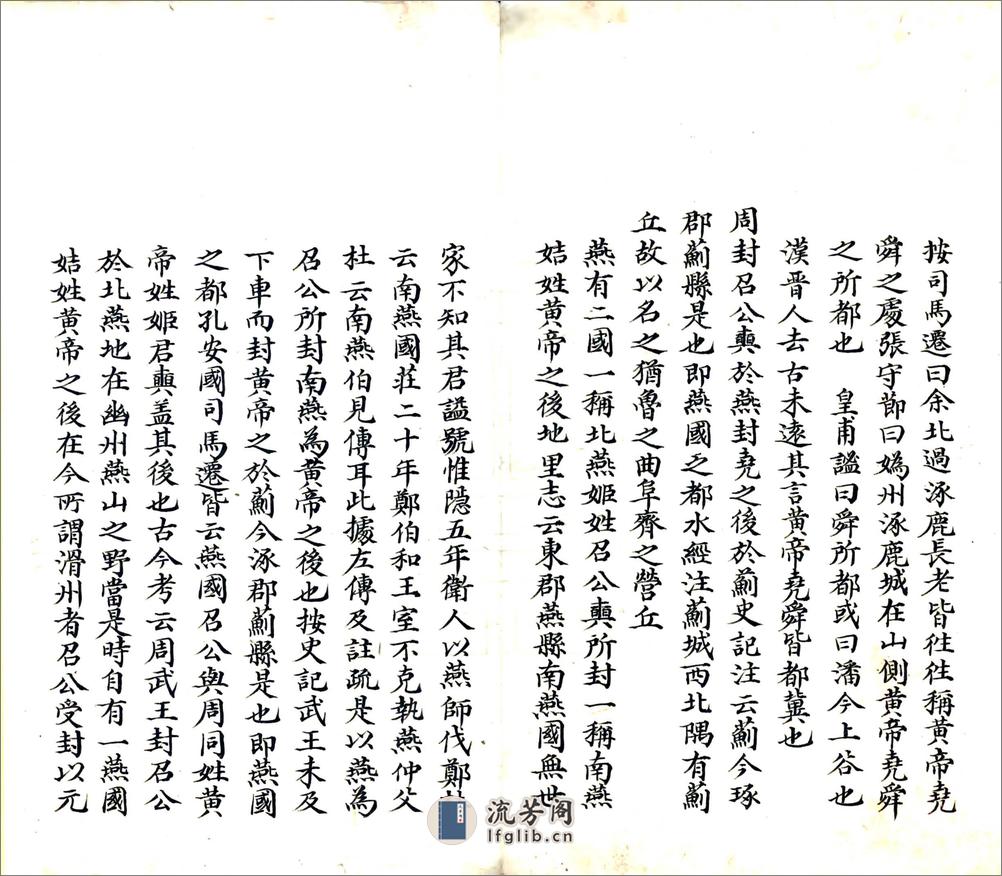 按司馬遷曰余北過涿鹿長老皆徃徃稱黃帝堯
舜之處張守節曰媯州涿鹿城在山側黃帝堯舜
之所都也　皇甫謐曰舜所都或曰潘今上谷也
漢晉人去古未遠其言黃帝堯舜皆都冀也
周封召公奭於燕封堯之後於薊史記注云薊今琢
郡薊縣是也即燕國之都水經注薊城西北隅有薊
丘故以名之猶魯之曲阜齊之營丘
燕有二國一稱北燕姬姓召公奭所封一稱南燕
姞姓黃帝之後地里志云東郡燕縣南燕國無世
家不知其君謚號惟隱五年衛人以燕師伐鄭
云南燕國莊二十年鄭伯和王室不克執燕仲父
杜云南燕伯見傳耳此據左傳及註疏是以燕為
召公所封南燕為黃帝之後也按史記武王未及
下車而封黃帝之於薊今涿郡薊縣是也即燕國
之都孔安國司馬遷皆云燕國召公與周同姓黃
帝姓姬君奭盖其後也古今考云周武王封召公
於北燕地在幽州燕山之野當是時自有一燕國
姞姓黃帝之後在今所謂滑州者召公受封以元
流芳阁
lfglib.cn